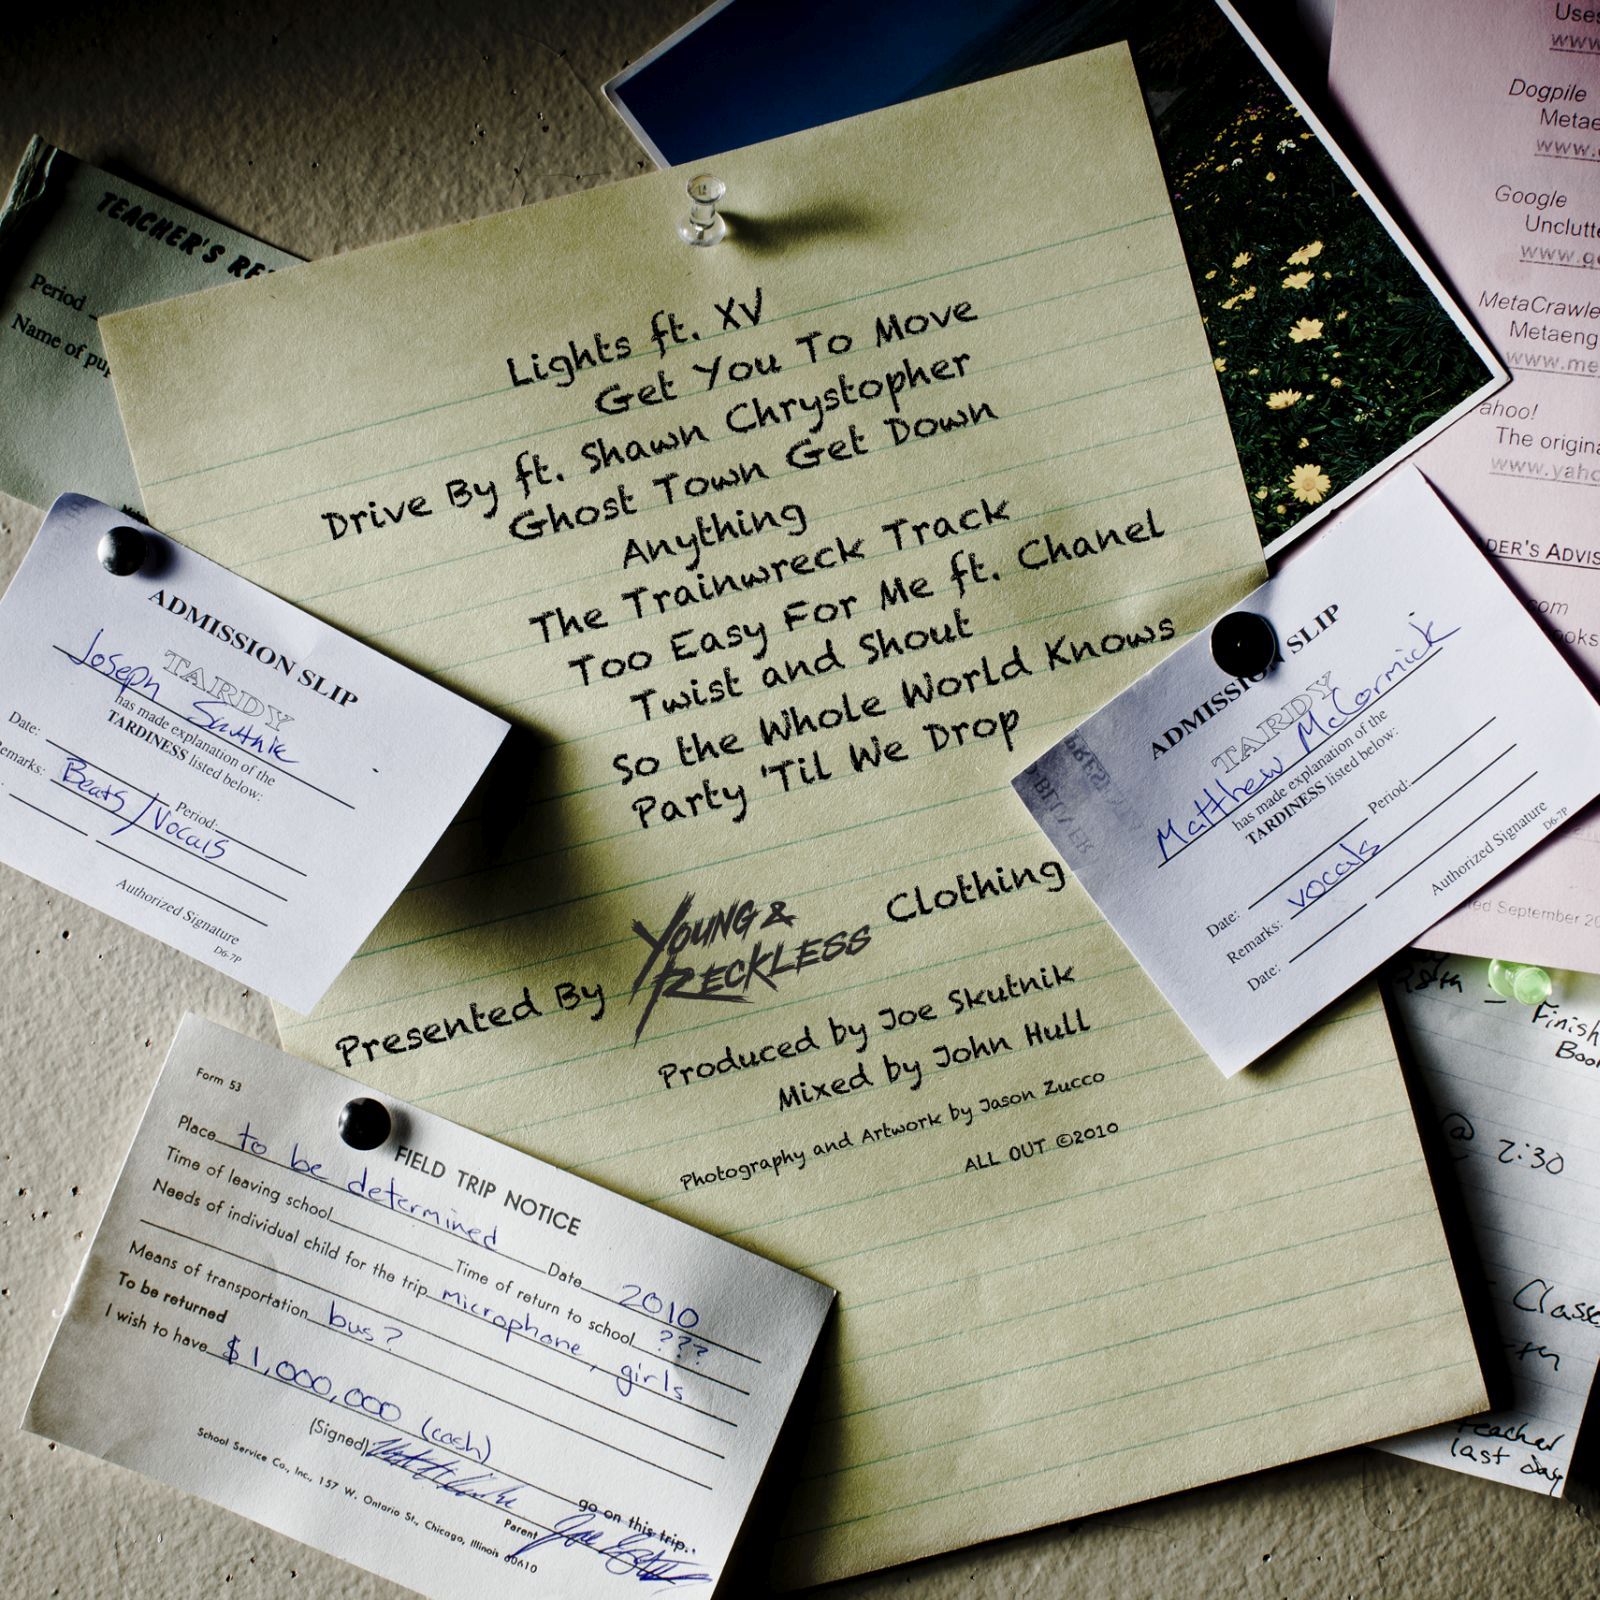 TEACHER'S RE
Period
Name of pup
Lights ft. XV
Get You To Move
Drive By ft. Shawn Chrystopher
Ghost Town Get Down
Anything
The Trainwreck Track
Too Easy For Me ft. Chanel
Twist and Shout
So the Whole World Knows
Party 'Til We Drop
Presented By YOUNG & RECKLESS Clothing
Produced by Joe Skutnik
Mixed by John Hull
Photography and Artwork by Jason Zucco
ALL OUT ©2010
ADMISSION SLIP
TARDY
Joseph Skutnik
has made explanation of the
TARDINESS listed below:
Date: Period:
Remarks: Beats/Vocals
Authorized Signature
D6-7P
ADMISSION SLIP
TARDY
Matthew McCormick
has made explanation of the
TARDINESS listed below:
Date: Period:
Remarks: vocals
Date:
Authorized Signature
D6-7P
Form 53
FIELD TRIP NOTICE
Place to be determined Date 2010
Time of leaving school Time of return to school ???
Needs of individual child for the trip microphone, girls
Means of transportation bus?
To be returned
I wish to have $1,000,000 (cash) go on this trip.
(Signed)
Parent
School Service Co., Inc., 157 W. Ontario St., Chicago, Illinois 60610
Uses
www
Dogpile
Metae
www.
Google
Unclutte
www.go
MetaCrawle
Metaeng
www.me
ahoo!
The origina
www.yaho
DER'S ADVIS
.com
ooks
ed September 20
Finish
Boo
@ 2:30
Classe
Teacher
last day